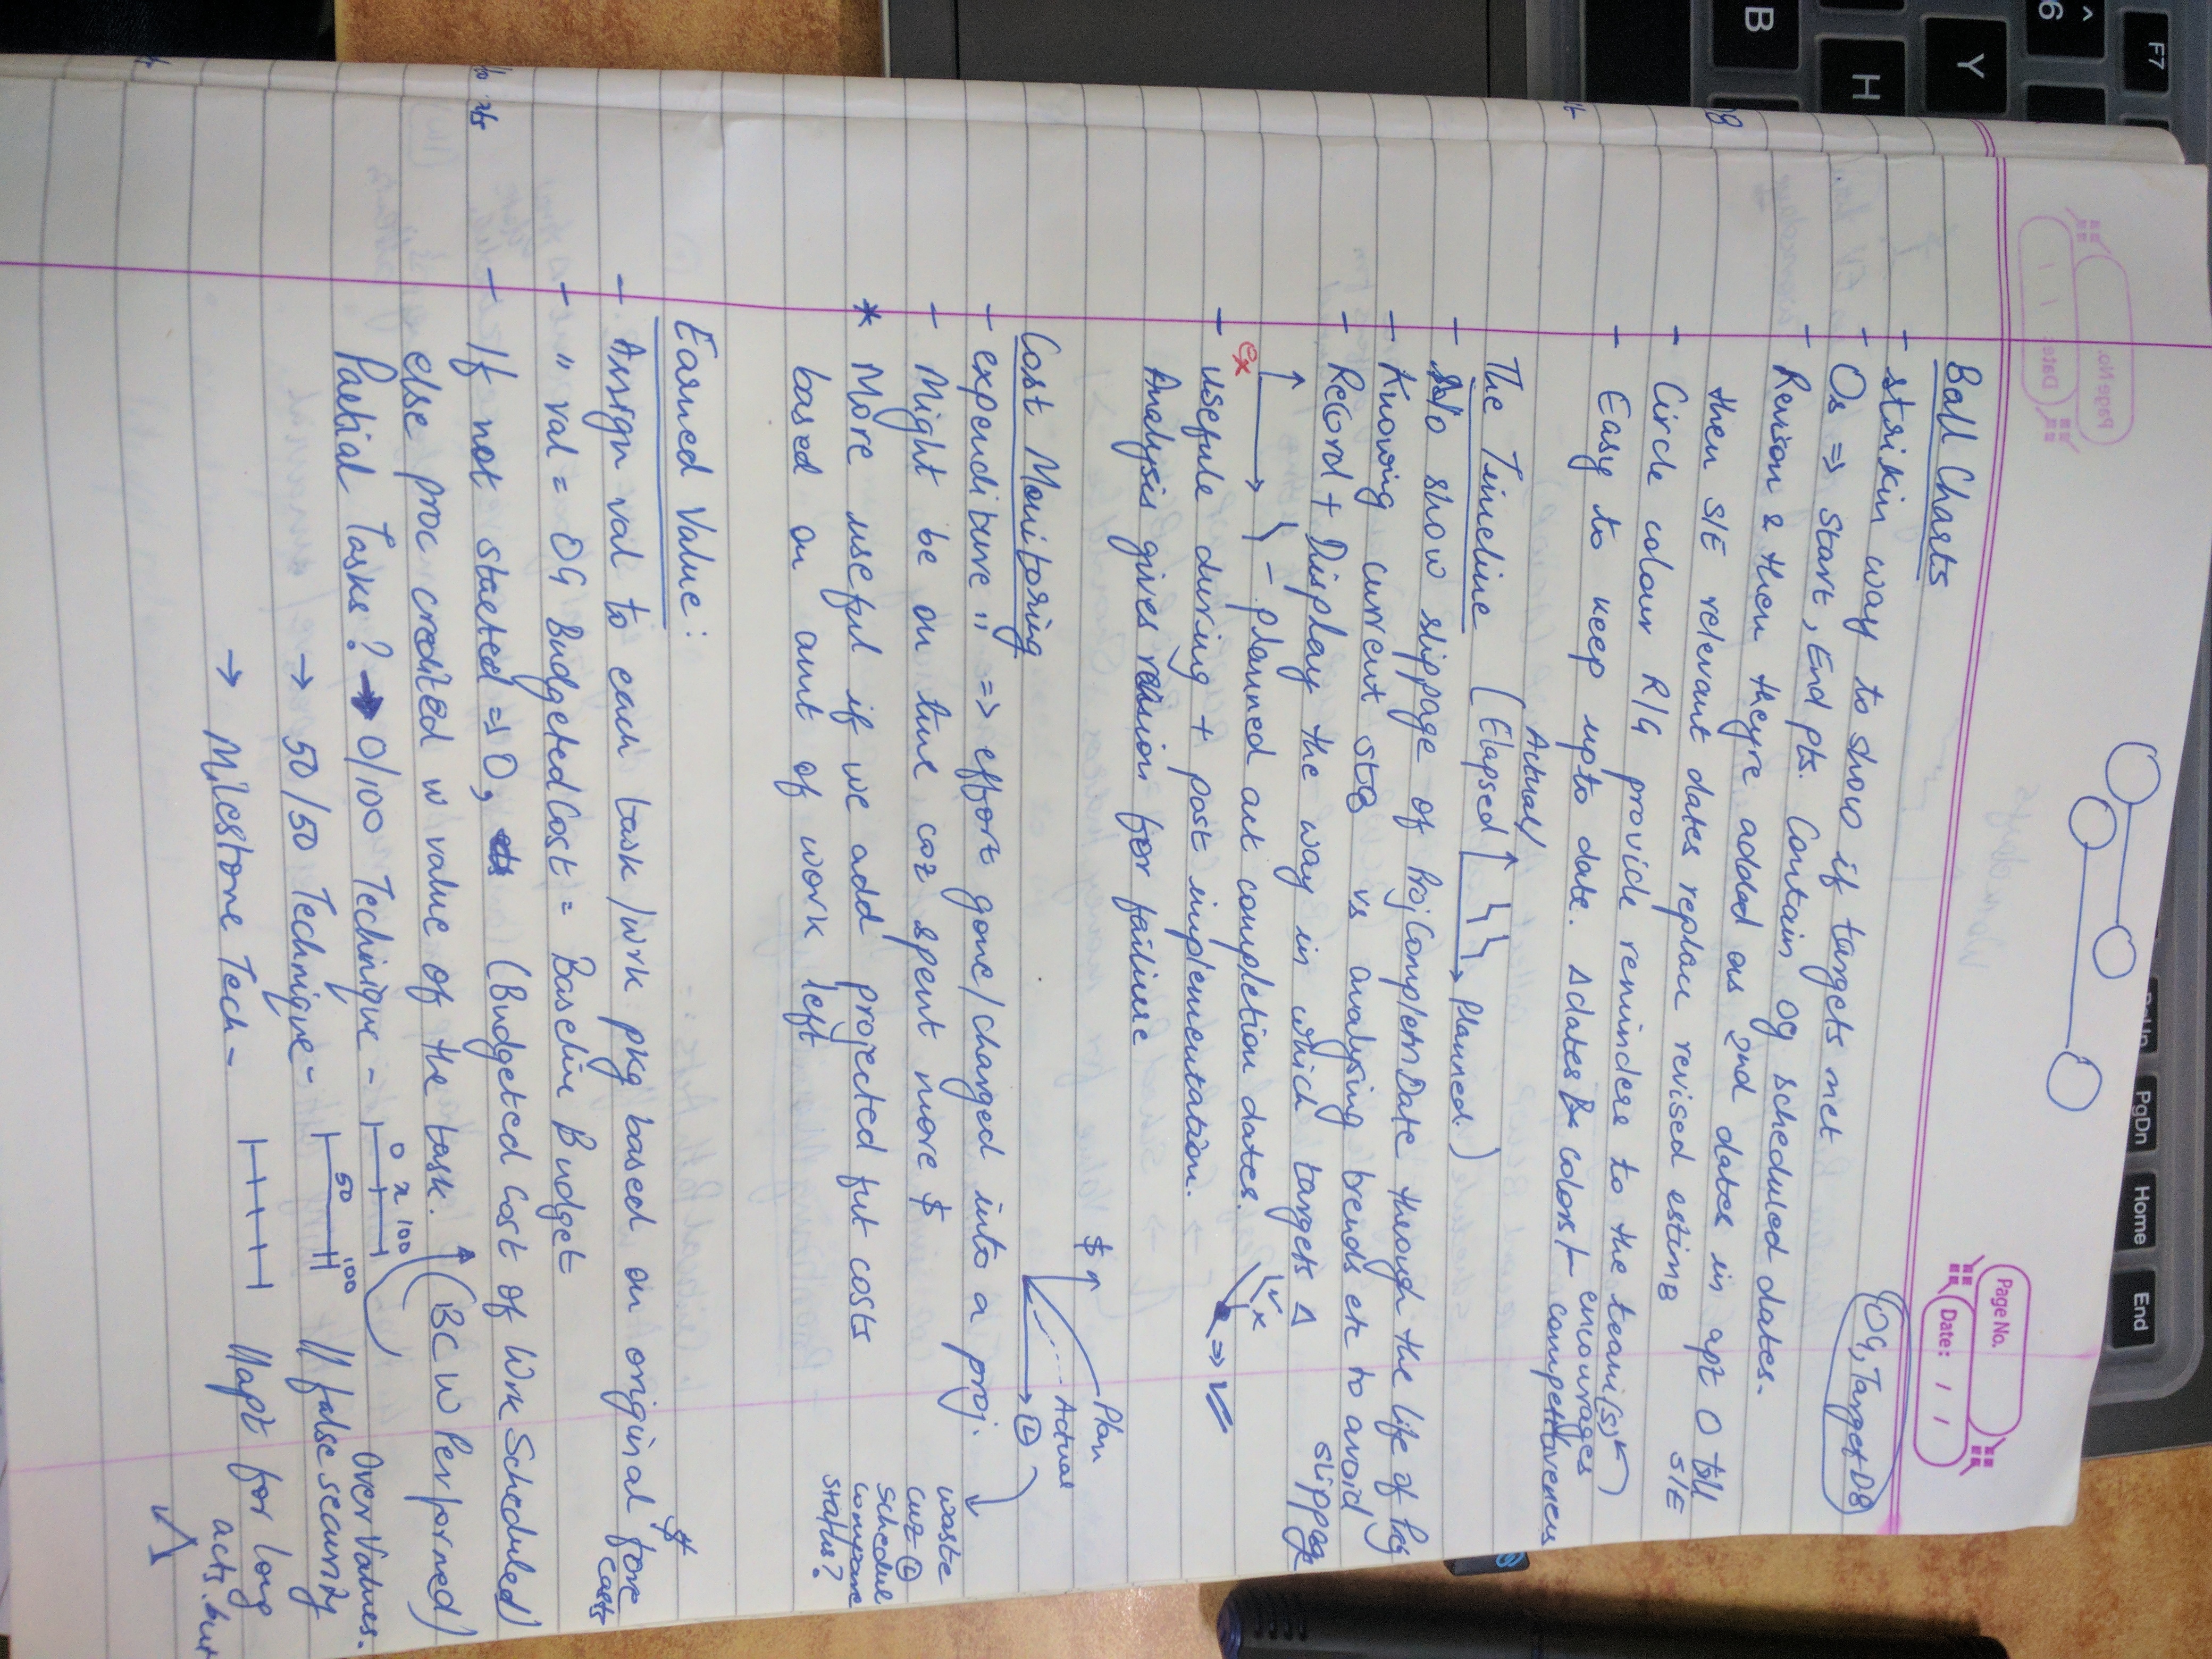 Page No.
Date: / /
OG, Target DB
Ball Charts
- strikin way to show if targets met
- Os => Start, End pts. Contain og scheduled dates.
- Revision & then theyre added as 2nd dates in apt O till
then S/E relevant dates replan revised estims S/E
- Circle colour R/G provide reminders to the team(s)
- Easy to keep upto date. Δdates & colors - encourages competitiveness
The Timeline (Elapsed Actual / Planned.)
- show slippage of Proj Completn Date through the life of Proj
- Knowing current sts vs analysing trends etc to avoid slippage
- Record + Display the way in which targets Δ
ex
- planned act completion dates.
- usefule during + post implementation.
Analysis gives reasion for failure
$
Plan
Actual
t
Cost Monitoring
- expenditure => effort gone/changed into a proj.
- Might be on time coz spent more $
waste cuz schedule compare status?
* More useful if we add projected fut costs
based on amt of work left
Earned Value:
- Assign val to each task/work pkg based on original $ fore casts
- " val = OG Budgeted Cost = Baseline Budget
- If not started => 0, (Budgeted Cost of Wrk Scheduled)
else proc credited w value of the task. (BCW Performed)
Partial Tasks? → 0/100 Technique - 0 x 100 Over Values.
→ 50/50 Technique - 50 100 // false security
→ Milestone Tech - // apt for long acts. but
F7
6
^
Y
H
B
PgUp
PgDn
Home
End